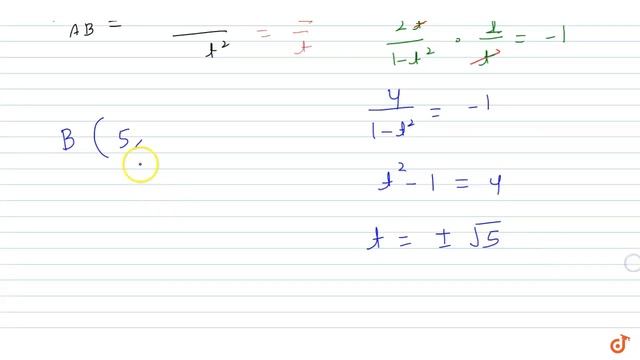 AB = / t² = / t
2t / 1-t² · 2 / t = -1
4 / 1-t² = -1
B ( 5,
t² - 1 = 4
t = ± √5